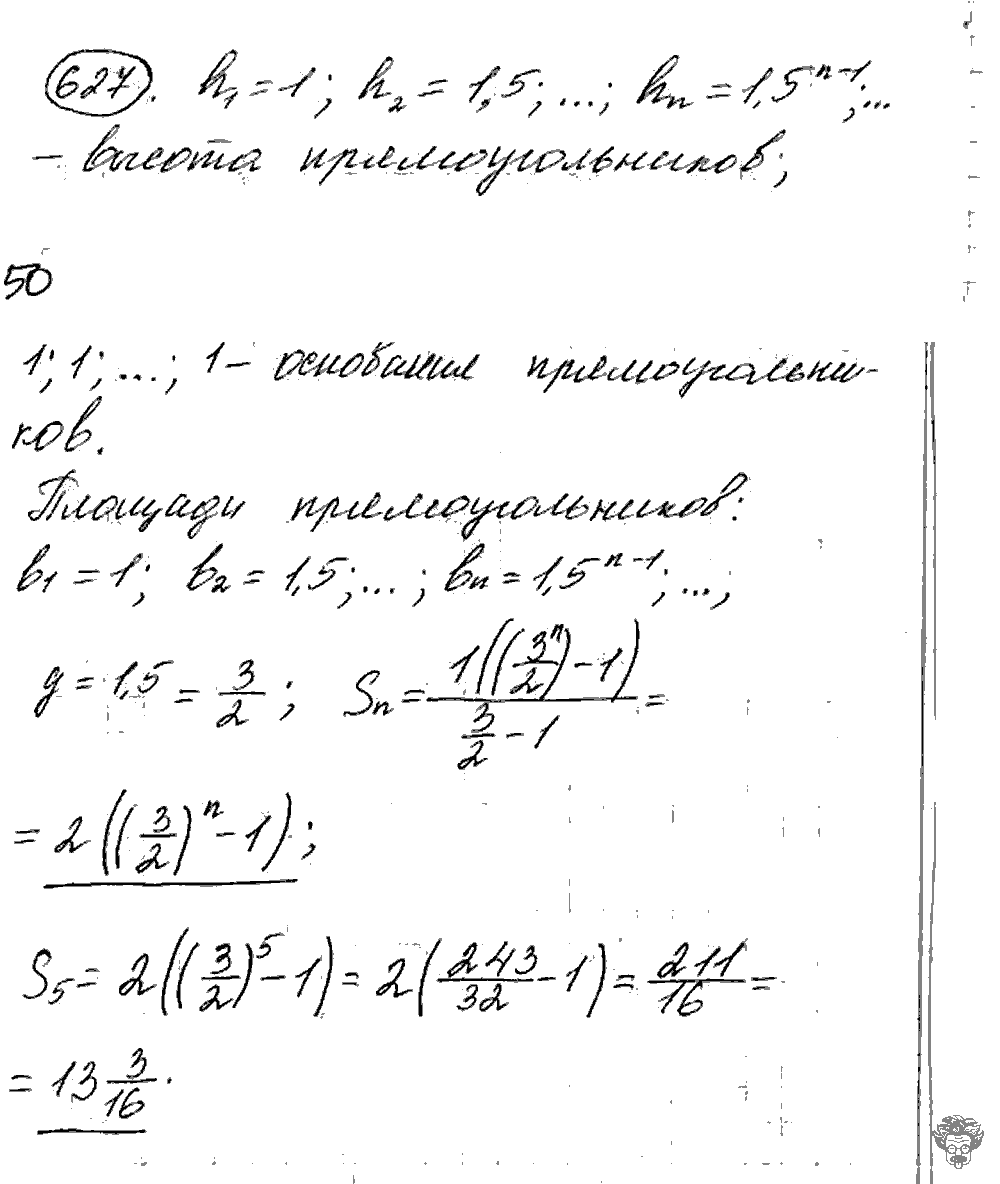 627. h₁ = 1; h₂ = 1,5; ...; hₙ = 1,5ⁿ⁻¹; ...
– высота прямоугольников;
50
1; 1; ...; 1 – основания прямоугольни-
ков.
Площади прямоугольников:
b₁ = 1; b₂ = 1,5; ...; bₙ = 1,5ⁿ⁻¹; ...;
q = 1,5 = 3/2; Sₙ = 1((3ⁿ/2) – 1) / (3/2 – 1) =
= 2((3/2)ⁿ – 1);
S₅ = 2((3/2)⁵ – 1) = 2(243/32 – 1) = 211/16 =
= 13 3/16.